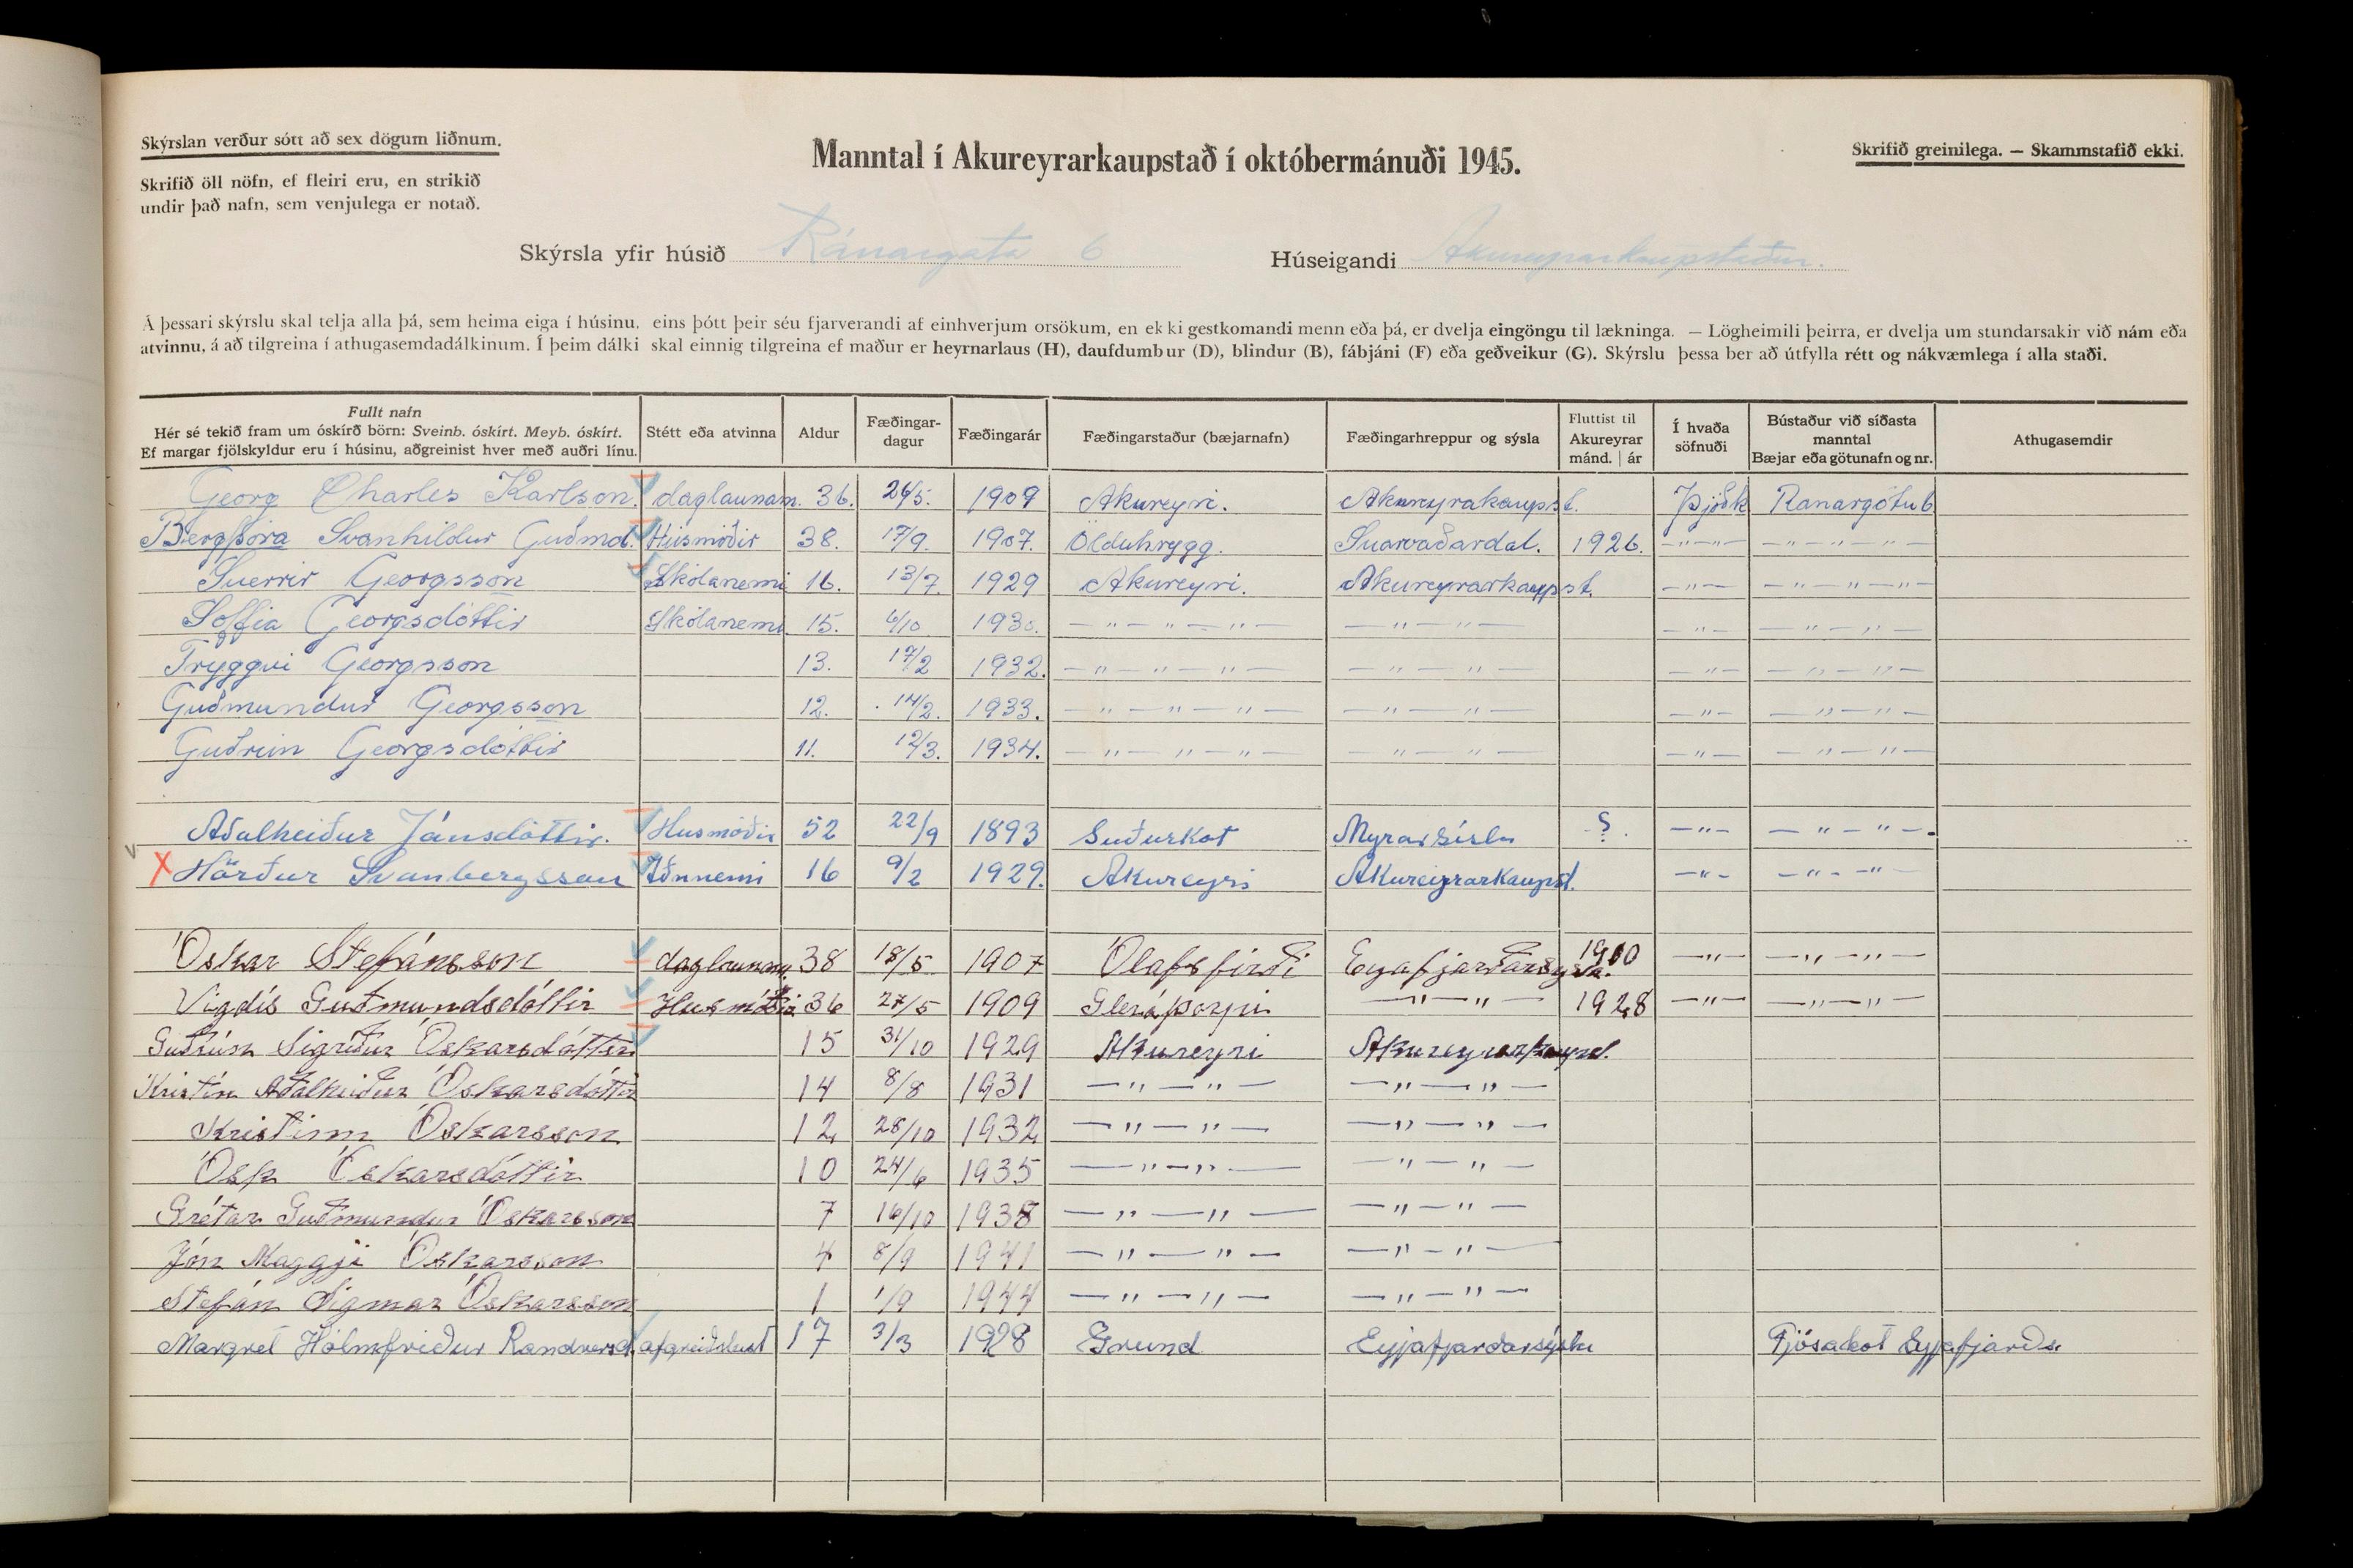 Skýrslan verður sótt að sex dögum liðnum.
Skrifið öll nöfn, ef fleiri eru, en strikið
undir það nafn, sem venjulega er notað.
Manntal í Akureyrarkaupstað í októbermánuði 1945.
Skrifið greinilega. — Skammstafið ekki.
Skýrsla yfir húsið Ránargata 6 Húseigandi Akureyrarkaupstaður.
Á þessari skýrslu skal telja alla þá, sem heima eiga í húsinu, eins þótt þeir séu fjarverandi af einhverjum orsökum, en ekki gestkomandi menn eða þá, er dvelja eingöngu til lækninga. — Lögheimili þeirra, er dvelja um stundarsakir við nám eða
atvinnu, á að tilgreina í athugasemdadálkinum. Í þeim dálki skal einnig tilgreina ef maður er heyrnarlaus (H), daufdumbur (D), blindur (B), fábjáni (F) eða geðveikur (G). Skýrslu þessa ber að útfylla rétt og nákvæmlega í alla staði.
Fullt nafn
Hér sé tekið fram um óskírð börn: Sveinb. óskírt. Meyb. óskírt.
Ef margar fjölskyldur eru í húsinu, aðgreinist hver með auðri línu.
Stétt eða atvinna
Aldur
Fæðingar-
dagur
Fæðingarár
Fæðingarstaður (bæjarnafn)
Fæðingarhreppur og sýsla
Fluttist til
Akureyrar
mánd. | ár
Í hvaða
söfnuði
Bústaður við síðasta
manntal
Bæjar eða götunafn og nr.
Athugasemdir
Georg Charles Karlson. daglaunam. 36. 26/5. 1909 Akureyri. Akureyrakaupst. Þjóðk Ranargötu 6
Bergþóra Svanhildur Guðmd. Húsmóðir 38. 17/9. 1907. Ölduhrygg. Svarvaðardal. 1926. —"—"— —"—"—"—
Sverrir Georgsson Skólanemi 16. 13/7. 1929 Akureyri. Akureyrarkaupst. —"— —"—"—"—
Soffia Georgsdóttir Skólanemi 15. 6/10 1930. —"—"—"— —"—"— —"— —"—"—
Tryggvi Georgsson 13. 17/2 1932. —"—"—"— —"—"— —"— —"—"—
Guðmundur Georgsson 12. 14/2. 1933. —"—"—"— —"—"— —"— —"—"—
Guðrún Georgsdóttir 11. 12/3. 1934. —"—"—"— —"—"— —"— —"—"—
Aðalheiður Jónsdóttir. Husmóðir 52 22/9 1893 Suðurkot Myrarsíslu ? —"— —"—"—
X Hörður Svanbergsson Iðnnemi 16 9/2 1929. Akureyri Akureyrarkaupst. —"— —"—"—
Óskar Stefánsson daglaunam. 38 18/5 1907 Ólafsfirði Eyafjarðarsysla. 1910 —"— —"—"—
Vigdís Guðmundsdóttir Husmóðir 36 27/5 1909 Gleráþorpi —"—"— 1928 —"— —"—"—
Guðrún Sigríður Óskarsdóttir 15 31/10 1929 Akureyri Akureyrarkaups.
Kristín Aðalheiður Óskarsdóttir 14 8/8 1931 —"—"— —"—"—
Kristinn Óskarsson 12 28/10 1932 —"—"— —"—"—
Ósk Óskarsdóttir 10 24/6 1935 —"—"— —"—"—
Grétar Guðmundur Óskarsson 7 16/10 1938 —"—"— —"—"—
Jón Maggji Óskarsson 4 8/9 1941 —"—"— —"—"—
Stefán Sigmar Óskarsson 1 1/9 1944 —"—"— —"—"—
Margrét Hólmfriður Randversd. afgreiðslust 17 3/3 1928 Grund Eyjafjarðarsýslu Fjósakot Eyjafjarðs.